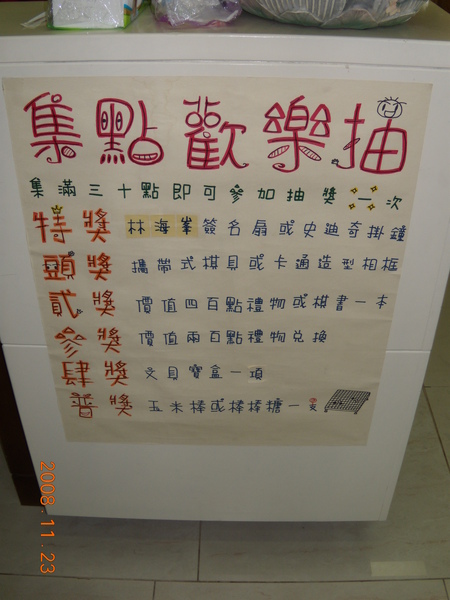 集點歡樂抽
集滿三十點即可參加抽獎一次
特獎 林海峯簽名扇或史迪奇掛鐘
頭獎 攜帶式棋具或卡通造型相框
貳獎 價值四百點禮物或棋書一本
參獎 價值兩百點禮物兌換
肆獎 文具寶盒一項
普獎 玉米棒或棒棒糖一支
2008.11.23